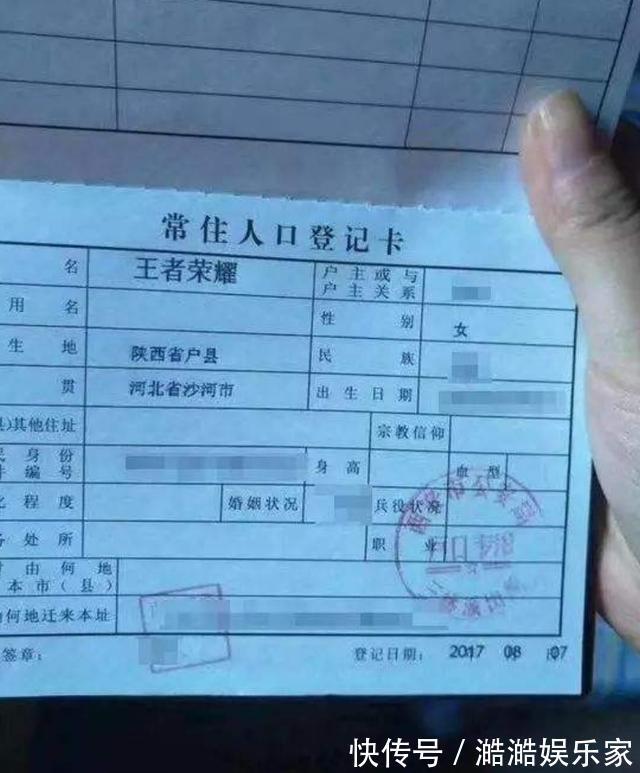 常住人口登记卡
名 王者荣耀 户主或与户主关系
用名 性别 女
生地 陕西省户县 民族
贯 河北省沙河市 出生日期
县)其他住址 宗教信仰
民身份
件编号 身高 血型
化程度 婚姻状况 兵役状况
务处所 职业
由何地
本市(县)
何地迁来本址
签章: 登记日期: 2017 08 07
快传号/澔澔娱乐家